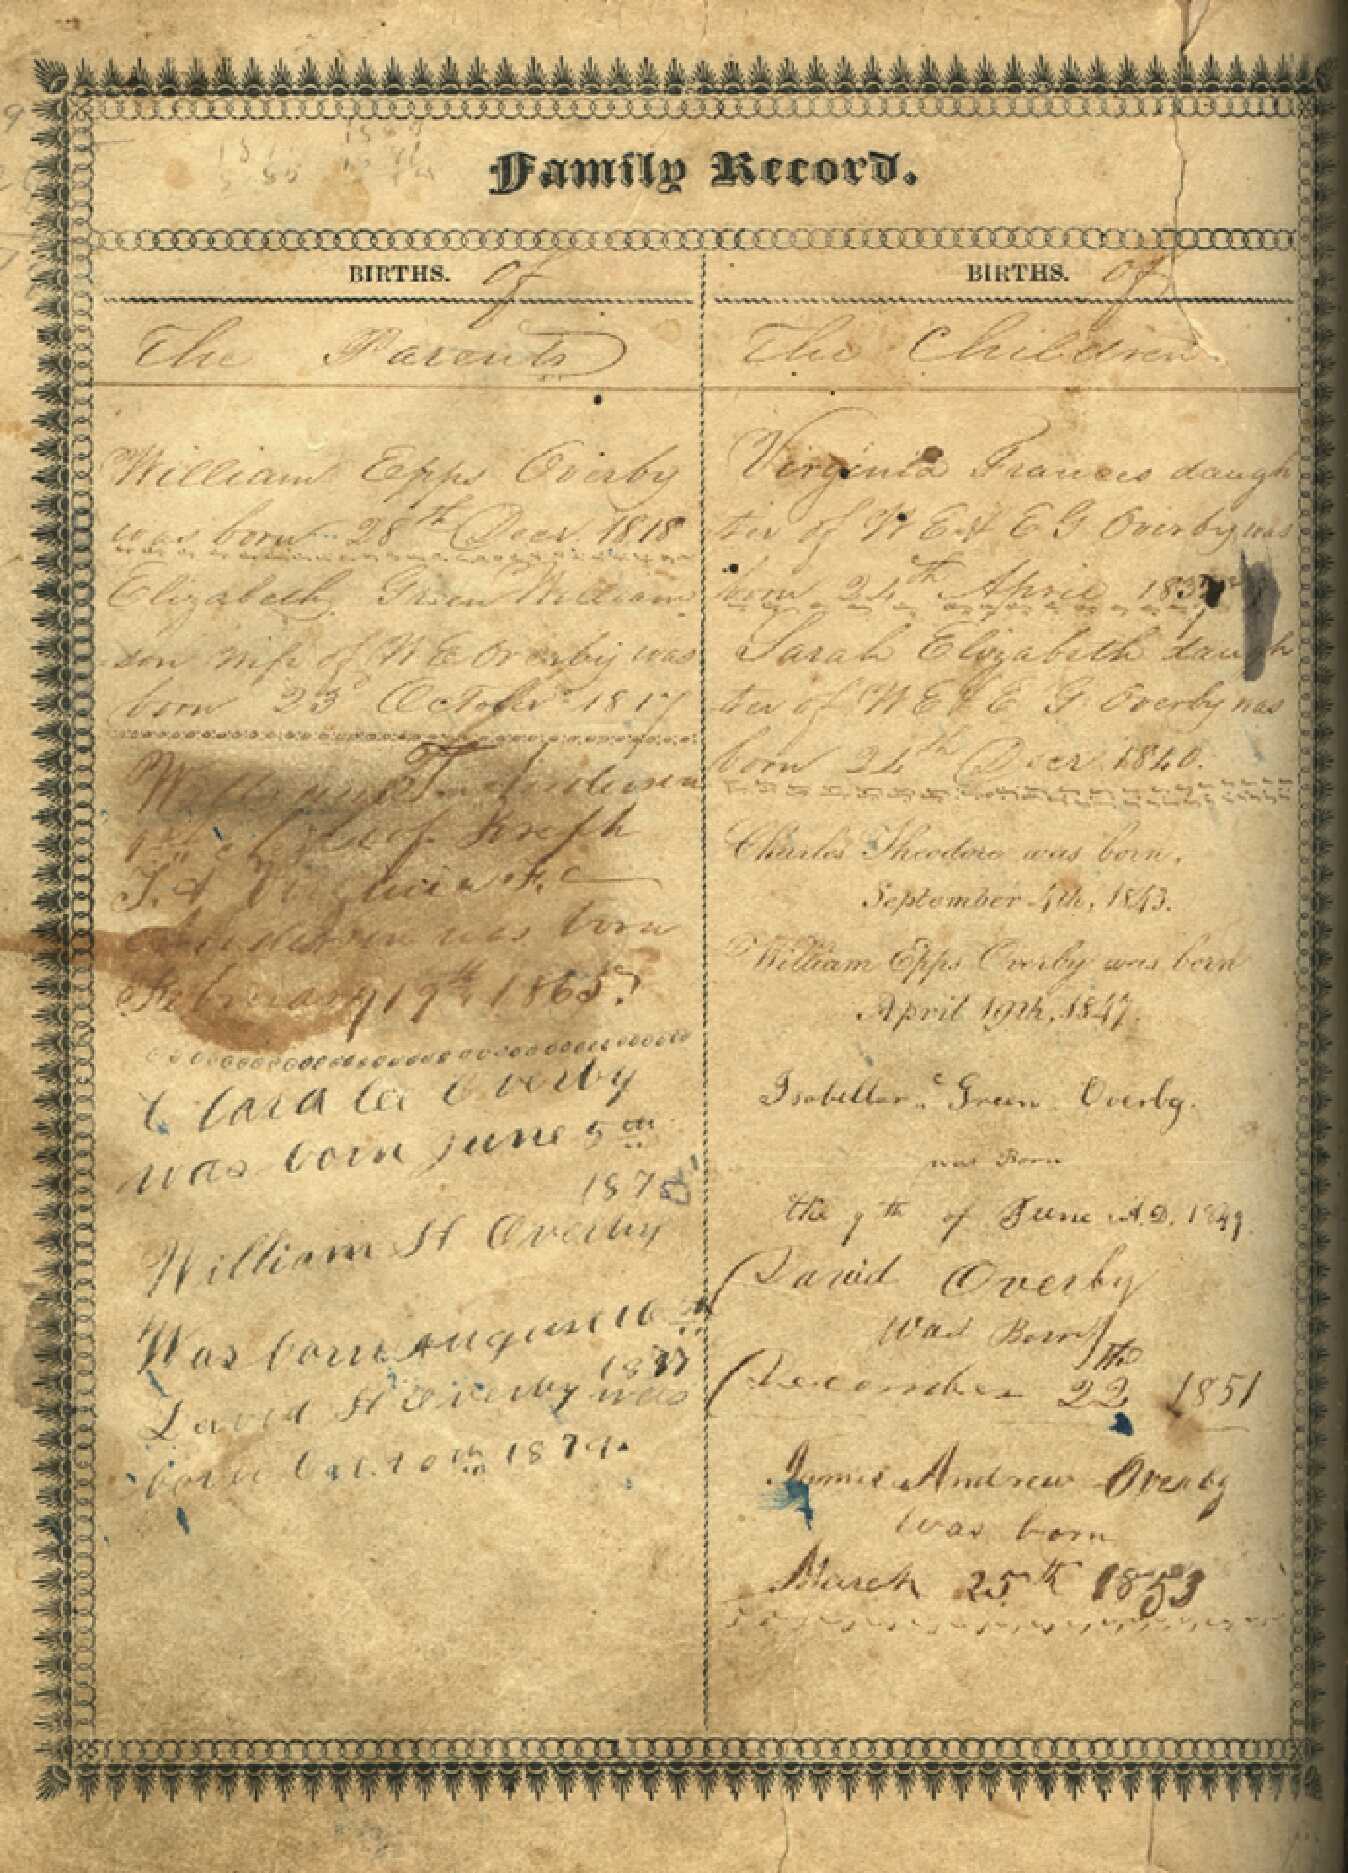 Family Record.
BIRTHS. of
The Parents
William Epps Overby
was born 28th Decr. 1818
Elizabeth Green William
son wife of W E Overby was
born 23d October 1817
William T. Anderson
of Joseph
T. & Virginia F.
Anderson was born
February 19th, 1865
Clara Lee Overby
was born June 5th
187
William H Overby
Was born August 16th
1877
David H Overby was
born Oct. 10th 1879.
BIRTHS. of
The Children
Virginia Frances daugh
ter of W E & E G Overby was
born 24th April 183
Sarah Elizabeth daugh
ter of W E & E G Overby was
born 24th Decr. 1840.
Charles Theodore was born,
September 4th, 1843.
William Epps Overby was born
April 19th, 1847.
Isabellar Green Overby.
was Born
the 9th of June A.D. 1849.
David Overby
Was Born
December 22th 1851
James Andrew Overby
was born
March 25th 1853